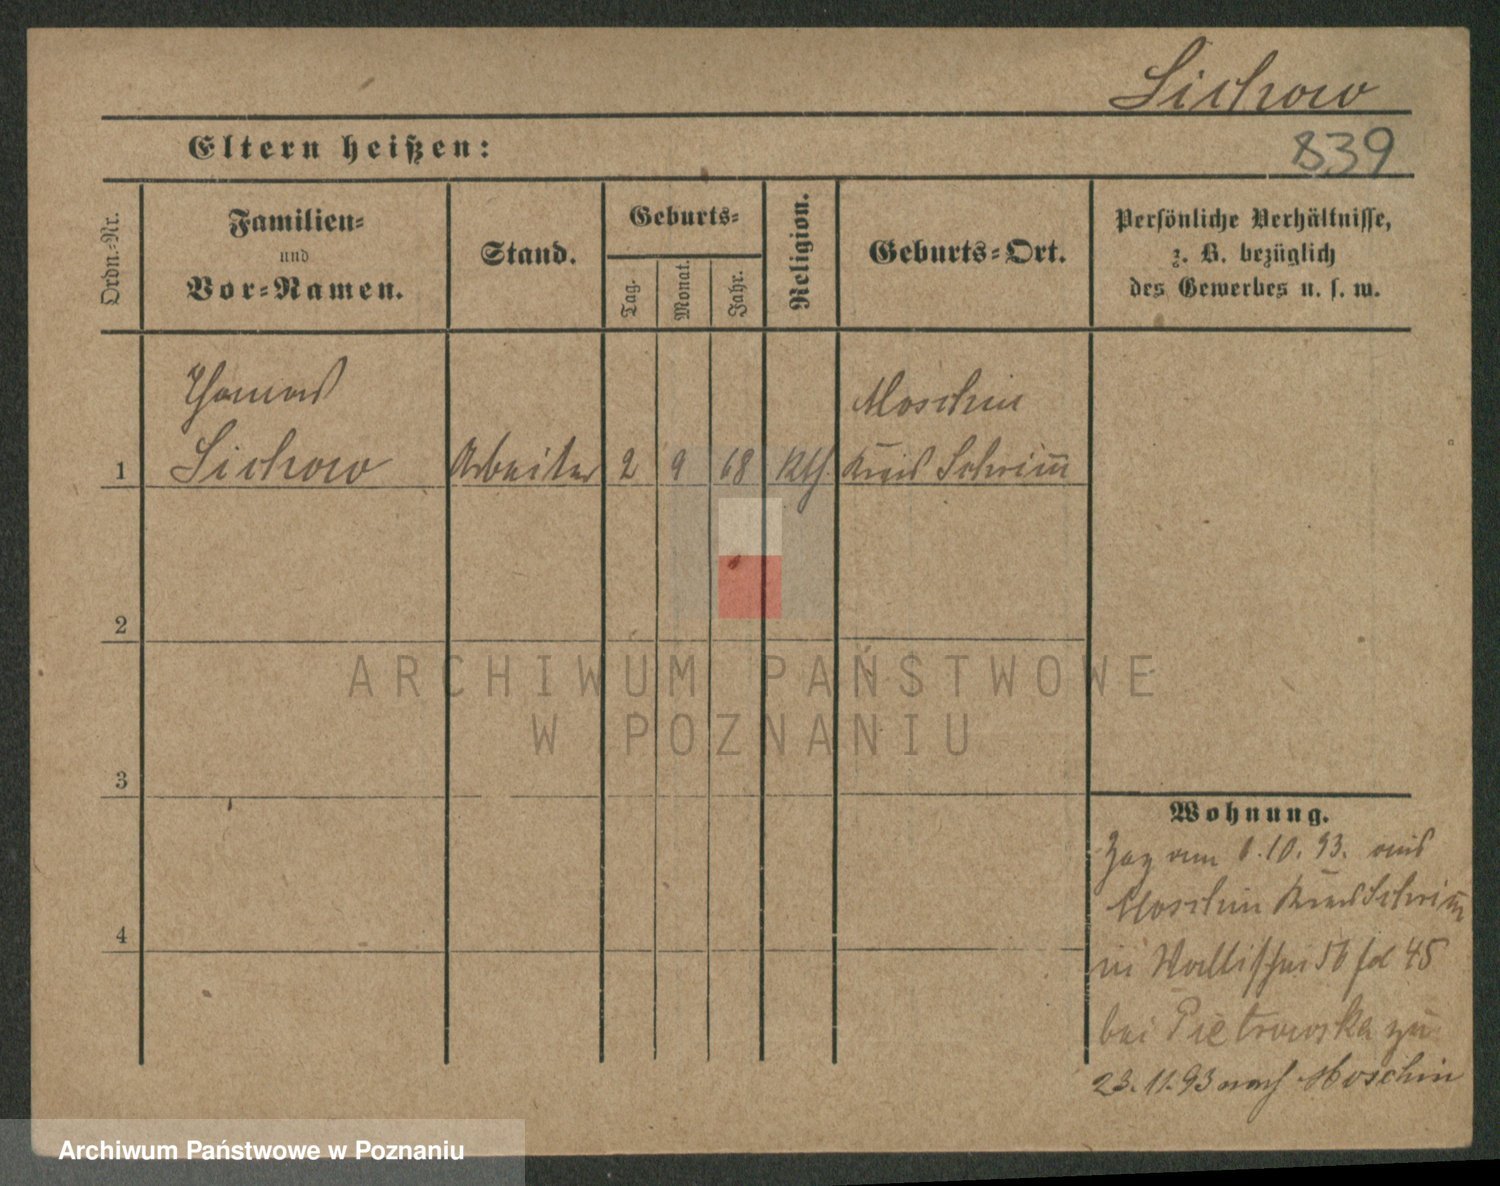 Sichow
Eltern heißen:
839
Ordn.-Nr.
Familien-
und
Vor-Namen.
Stand.
Geburts-
Tag.
Monat.
Jahr.
Religion.
Geburts-Ort.
Persönliche Verhältnisse,
z. B. bezüglich
des Gewerbes u. s. w.
Thomas
Moschin
1
Sichow
Arbeiter
2
9
68
Kth.
Kreis Schrim̅
2
ARCHIWUM PAŃSTWOWE
W POZNANIU
3
Wohnung.
Zog am 1.10.93. aus
Moschin Kreis Schrim̅
4
in Wallischei 56 fol 45
bei Pietrowska zu
23.11.93 nach Moschin
Archiwum Państwowe w Poznaniu